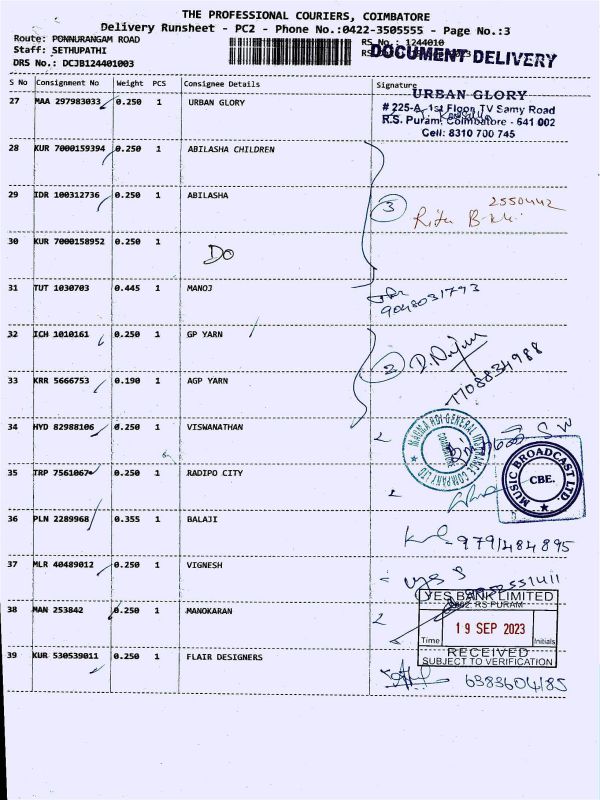 THE PROFESSIONAL COURIERS, COIMBATORE
Delivery Runsheet - PC2 - Phone No.:0422-3505555 - Page No.:3
Route: PONNURANGAM ROAD
RS No.: 1244010
Staff: SETHUPATHI
DOCUMENT DELIVERY
DRS No.: DCJB124401003
S No Consignment No Weight PCS Consignee Details Signature
27 MAA 297983033 0.250 1 URBAN GLORY
URBAN GLORY
# 225-A, 1st Floor, TV Samy Road
R.S. Puram, Coimbatore - 641 002
Cell: 8310 700 745
28 KUR 7000159394 0.250 1 ABILASHA CHILDREN
29 IDR 100312736 0.250 1 ABILASHA
3 2550442
30 KUR 7000158952 0.250 1 DO
31 TUT 1030703 0.445 1 MANOJ
9048031793
32 ICH 1010161 0.250 1 GP YARN
2
7708834988
33 KRR 5666753 0.190 1 AGP YARN
34 HYD 82988106 0.250 1 VISWANATHAN
MAGMA HDI GENERAL INSURANCE COMPANY LTD
COIMBATORE
35 TRP 7561067 0.250 1 RADIPO CITY
MUSIC BROADCAST LTD.
CBE.
36 PLN 2289968 0.355 1 BALAJI
9791484895
37 MLR 40489012 0.250 1 VIGNESH
38 MAN 253842 0.250 1 MANOKARAN
YES BANK LIMITED
RS PURAM
19 SEP 2023
Time Initials
RECEIVED
SUBJECT TO VERIFICATION
39 KUR 530539011 0.250 1 FLAIR DESIGNERS
6383604185